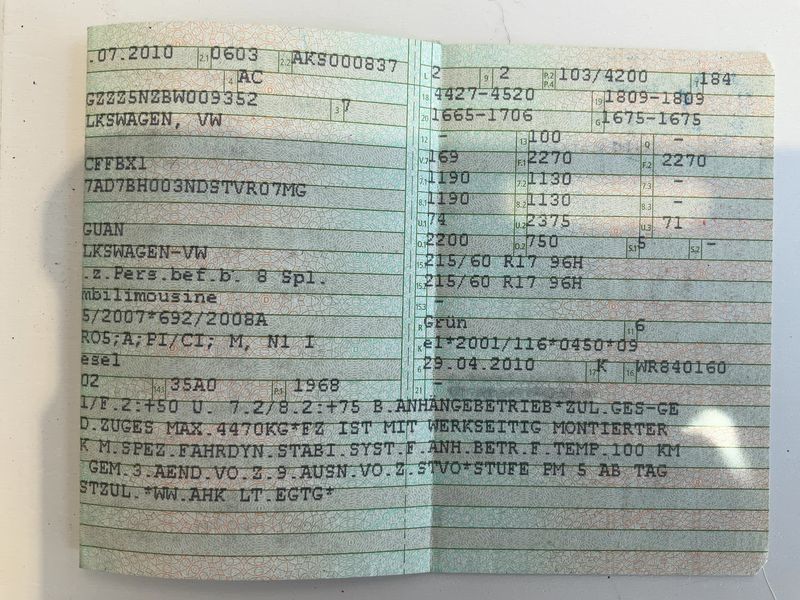 .07.2010 2.1 0603 2.2 AKS000837
4 AC
GZZZ5NZBW009352 3 7
LKSWAGEN, VW
CFFBX1
7AD7BH003NDSTVR07MG
GUAN
LKSWAGEN-VW
.z.Pers.bef.b. 8 Spl.
mbilimousine
5/2007*692/2008A
RO5;A;PI/CI; M, N1 I
esel
02 14.1 35A0 P.1 1968
L 2 9 2 P.2 P.4 103/4200 T 184
18 4427-4520 19 1809-1809
20 1665-1706 G 1675-1675
12 - 13 100 Q -
V.7 169 F.1 2270 F.2 2270
7.1 1190 7.2 1130 7.3 -
8.1 1190 8.2 1130 8.3 -
U.1 74 U.2 2375 U.3 71
O.1 2200 O.2 750 S.1 5 S.2 -
15.1 215/60 R17 96H
15.2 215/60 R17 96H
15.3 -
R Grün 11 6
K e1*2001/116*0450*09
6 29.04.2010 17 K 16 WR840160
21 -
1/F.2:+50 U. 7.2/8.2:+75 B.ANHÄNGEBETRIEB*ZUL.GES-GE
D.ZUGES MAX.4470KG*FZ IST MIT WERKSEITIG MONTIERTER
K M.SPEZ.FAHRDYN.STABI.SYST.F.ANH.BETR.F.TEMP.100 KM
GEM.3.AEND.VO.Z.9.AUSN.VO.Z.STVO*STUFE PM 5 AB TAG
STZUL.*WW.AHK LT.EGTG*